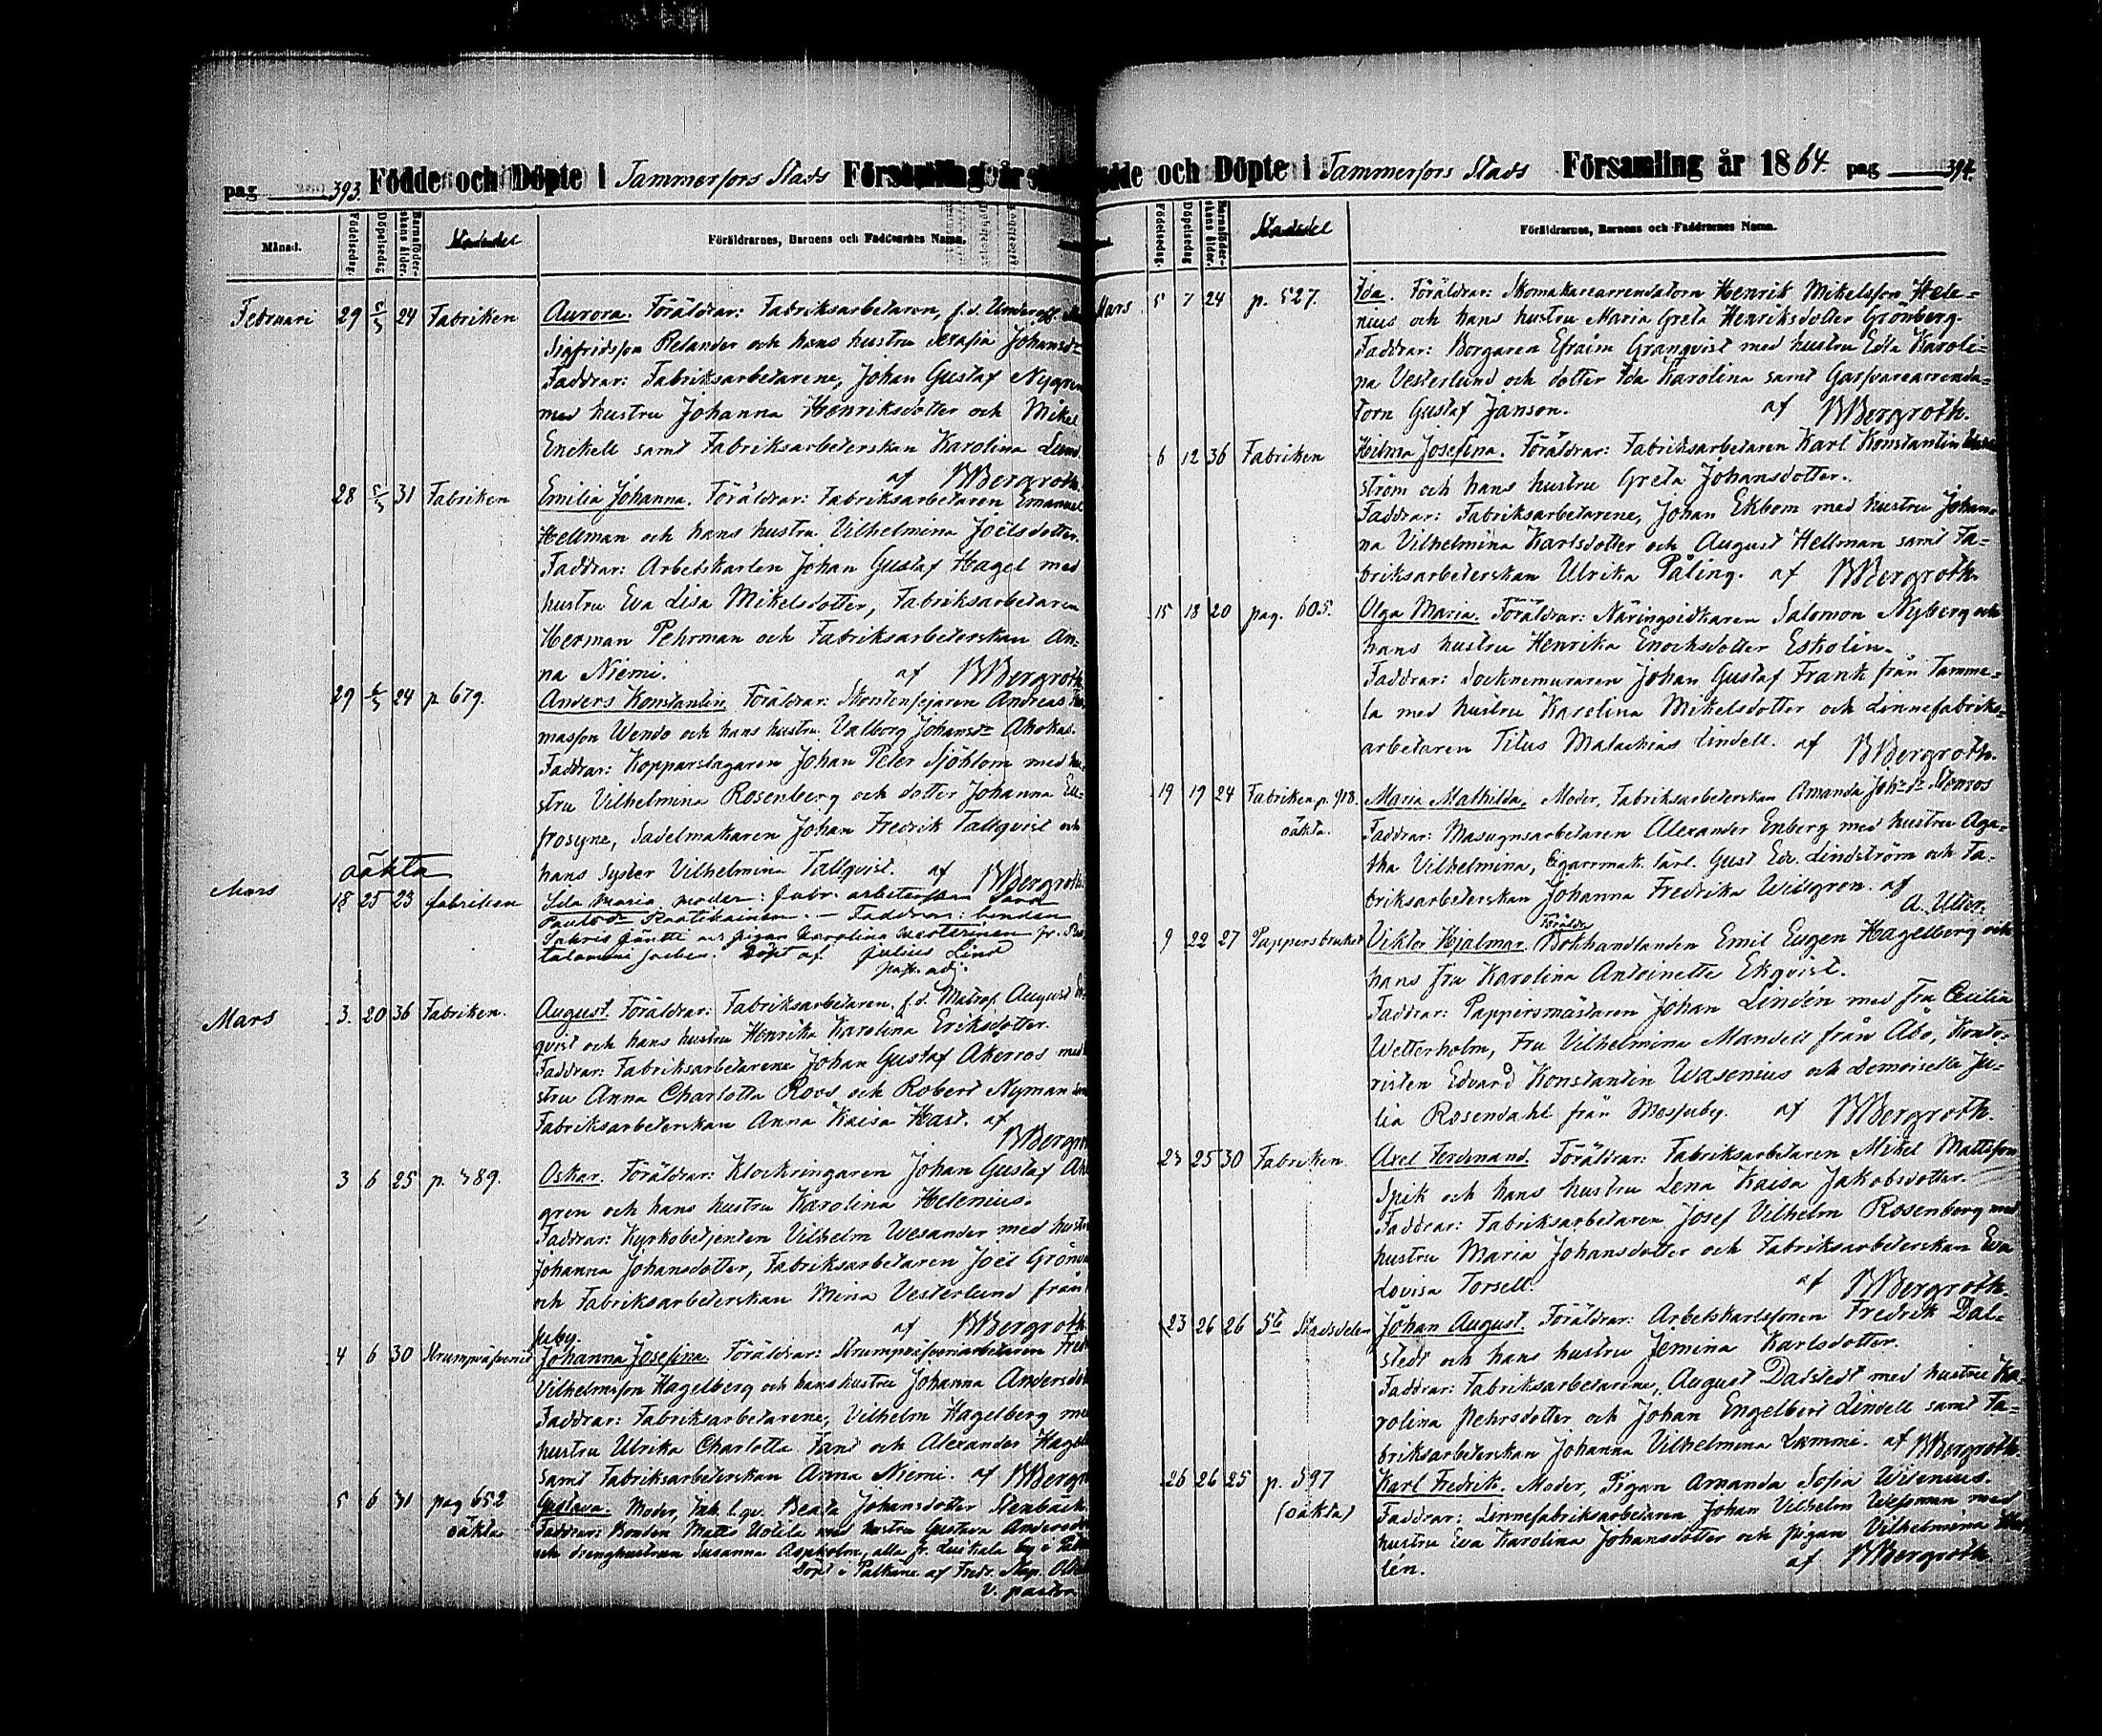 pag 393. Födde och Döpte i Tammerfors Stads Församling år
Månad. Födelsedag. Döpelsedag. Barnaföderskans ålder. Stadsdel Föräldrarnes, Barnens och Faddrarnes Namn.
Februari 29 5/3 24 Fabriken Aurora. Föräldrar: Fabriksarbetaren, f.d. Underoff.
Sigfridsson Relander och hans hustru Serafia Johansdr
Faddrar: Fabriksarbetarene, Johan Gustaf Nygren
med hustru Johanna Henriksdotter och Mikel
Enckell samt Fabriksarbeterskan Karolina Lund.
af BBergroth.
28 5/3 31 Fabriken Emilia Johanna. Föräldrar: Fabriksarbetaren Emanuel
Hellman och hans hustru Vilhelmina Joelsdotter.
Faddrar: Arbetskarlen Johan Gustaf Hagel med
hustru Eva Lisa Mikelsdotter, Fabriksarbetaren
Herman Pehrman och Fabriksarbeterskan An-
na Niemi. af BBergroth
29 6/3 24 p. 679. Anders Konstantin. Föräldrar: Skorstensfejaren Andreas
masson Wendo och hans hustru Valborg Johansdr Ahokas.
Faddrar: Kopparslagaren Johan Peter Sjöblom med hu-
stru Vilhelmina Rosenberg och dotter Johanna Eu-
frosyne, Sadelmakaren Johan Fredrik Tallqvist och
hans syster Vilhelmina Tallqvist. af BBergroth.
oäkta
Mars 18 25 23 fabriken Ida Maria moder: fabr. arbeterskan Sara
Paulsdr Raatikainen. — Faddrar: bonden
Sakris Jäntti och pigan Karolina
Döpt af Julius Lind
past. adj.
Mars 3. 20 36 Fabriken. August. Föräldrar: Fabriksarbetaren, f.d. Matros. August
qvist och hans hustru Henrika Karolina Eriksdotter.
Faddrar: Fabriksarbetarene Johan Gustaf Akerros med
stru Anna Charlotta Roos och Robert Nyman
Fabriksarbeterskan Anna Kaisa Hast. af
BBergro
3 6 25 p. 389. Oskar. Föräldrar: Klockringaren Johan Gustaf
gren och hans hustru Karolina Helenius.
Faddrar: Kyrkobetjenten Vilhelm Wesander med hustru
Johanna Johansdotter, Fabriksarbetaren Joel
och Fabriksarbeterskan Mina Vesterlund från
by. af BBergroth
4 6 30 Strumpväfveriet Johanna Josefina. Föräldrar: Strumpväfveriarbetaren Fred
Vilhelmsson Hagelberg och hans hustru Johanna Andersdot
Faddrar: Fabriksarbetarene, Vilhelm Hagelberg med
hustru Ulrika Charlotta Fant och Alexander Hagel
samt Fabriksarbeterskan Anna Niemi. af BBergr
5 6 31 pag 652 Gustava. Moder, Inh. l. qv. Beata Johansdotter Stenbäck
oäkta Faddrar: Bonden Matts Uotila med hustru Gustava Andersd
och drenghustrun Susanna Aspholm, alla fr. Luikala by i Pälk
Döpt i Pälkäne af Fredr.
V. pastor
Födde och Döpte i Tammerfors Stads Församling år 1864. pag 394.
Födelsedag. Döpelsedag Barnaföderskans ålder. Stadsdel Föräldrarnes, Barnens och Faddrarnes Namn.
Mars 5 7 24 p. 527. Ida. Föräldrar: Skomakarearrendatorn Henrik Mikelsson Hele-
nius och hans hustru Maria Greta Henriksdotter Grönberg.
Faddrar: Borgaren Efraim Granqvist med hustru Edla Karoli-
na Vesterlund och dotter Ida Karolina samt Garfvarearrenda-
torn Gustaf Janson. af BBergroth.
6 12 36 Fabriken Hilma Josefina. Föräldrar: Fabriksarbetaren Karl Konstantin
ström och hans hustru Greta Johansdotter.
Faddrar: Fabriksarbetarene, Johan Ekbom med hustru Johan-
na Vilhelmina Karlsdotter och August Hellman samt Fa-
briksarbeterskan Ulrika Påling. af BBergroth.
15 18 20 pag. 605. Olga Maria. Föräldrar: Näringsidkaren Salomon Nyberg och
hans hustru Henrika Enochsdotter Eskolin.
Faddrar: Socknemuraren Johan Gustaf Frank från Tamme-
la med hustru Karolina Mikelsdotter och Linnefabriks-
arbetaren Titus Malachias Lindell. af BBergroth.
19 19 24 Fabriken p. 918. Maria Mathilda. Moder, Fabriksarbeterskan Amanda Johsdr Stenroos
oäkta. Faddrar: Masugnsarbetaren Alexander Enberg med hustru Aga-
tha Vilhelmina, Cigarrmak. lärl. Gust Edv. Lindström och Fa-
briksarbeterskan Johanna Fredrika Widgren. af
A.
9 22 27 Pappersbruket Viktor Hjalmar. Föräldr Bokhandlanden Emil Eugen Hagelberg och
hans fru Karolina Antoinette Ekqvist.
Faddrar: Pappersmästaren Johan Lindén med fru Cecilia
Wetterholm, Fru Vilhelmina Mandell från Åbo, Konto-
risten Edvard Konstantin Wasenius och Demoiselle Ju-
lia Rosendahl från Messuby. af BBergroth.
23 25 30 Fabriken Axel Ferdinand. Föräldrar: Fabriksarbetaren Mikel Mattsson
Spik och hans hustru Lena Kaisa Jakobsdotter.
Faddrar: Fabriksarbetaren Josef Vilhelm Rosenberg med
hustru Maria Johansdotter och Fabriksarbeterskan Eva
Lovisa Torsell. af BBergroth.
23 26 26 5te Stadsdelen Johan August. Föräldrar: Arbetskarlssonen Fredrik Dal-
stedt och hans hustru Jemina Karlsdotter.
Faddrar: Fabriksarbetarene, August Dalstedt med hustru Ka-
rolina Pehrsdotter och Johan Engelbert Lindell samt Fa-
briksarbeterskan Johanna Vilhelmina Lammi. af BBergroth.
26 26 25 p. 597 Karl Fredrik. Moder, Pigan Amanda Sofia Widenius.
(oäkta) Faddrar: Linnefabriksarbetaren Johan Vilhelm Wessman med
hustru Eva Karolina Johansdotter och pigan Vilhelmina
lén. af BBergroth